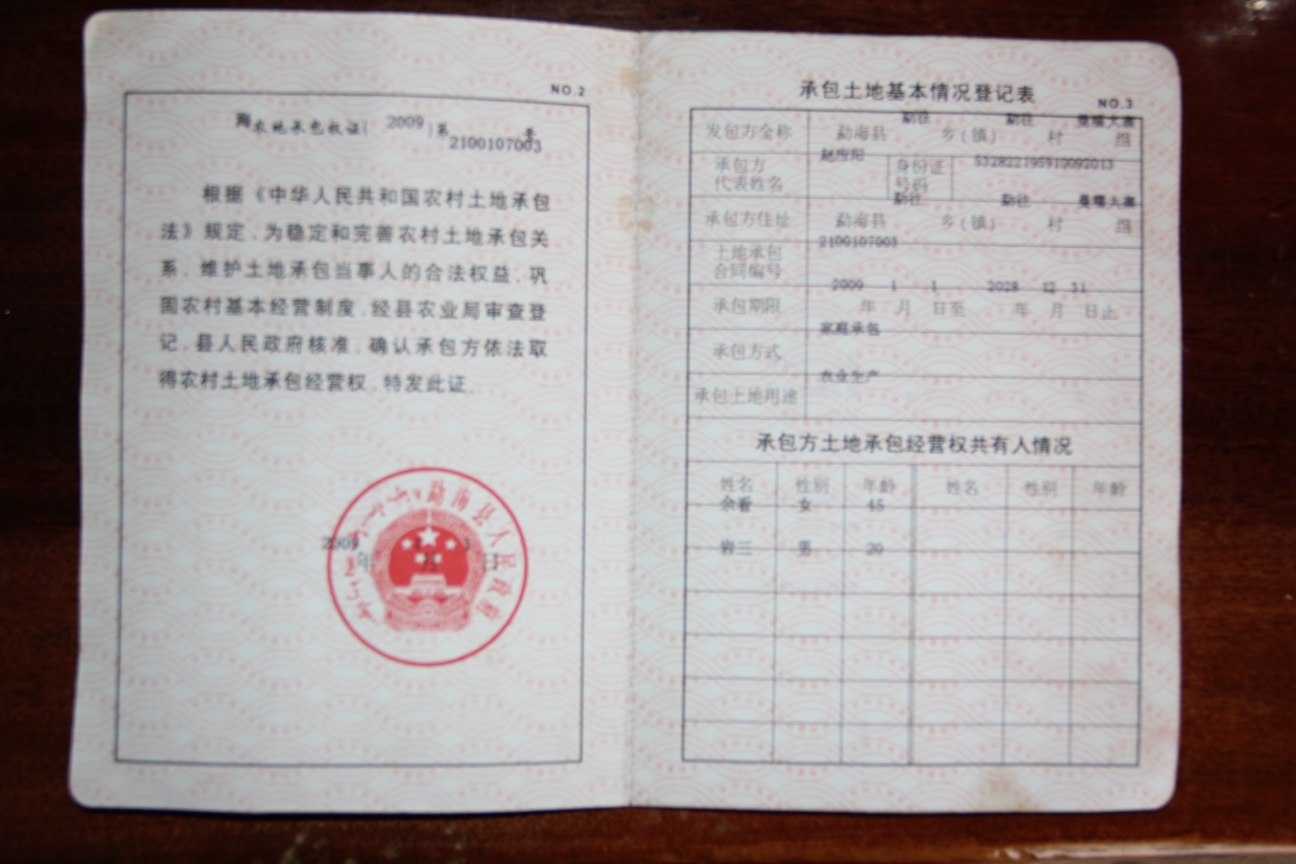 NO.2
海农地承包权证( 2009 )第2100107003号
根据《中华人民共和国农村土地承包
法》规定、为稳定和完善农村土地承包关
系、维护土地承包当事人的合法权益、巩
固农村基本经营制度.经县农业局审查登
记、县人民政府核准、确认承包方依法取
得农村土地承包经营权.特发此证.
勐海县人民政府
2009年 月 1日
承包土地基本情况登记表
NO.3
发包方全称 勐海县 勐往 乡(镇) 勐往 村 曼糯大寨 组
承包方代表姓名 赵应阳 身份证号码
承包方住址 勐海县 勐往 乡(镇) 勐往 村 曼糯大寨 组
土地承包合同编号 2100107003
承包期限 2009 年 1 月 1 日至 2028 年 12 月 31 日止
承包方式 家庭承包
承包土地用途 农业生产
承包方土地承包经营权共有人情况
姓名 性别 年龄 姓名 性别 年龄
余看 女 45
岩三 男 20